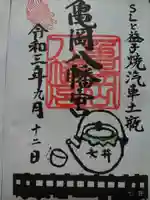 SLと益子焼汽車土瓶
亀岡八幡宮
令和三年九月十二日
七井